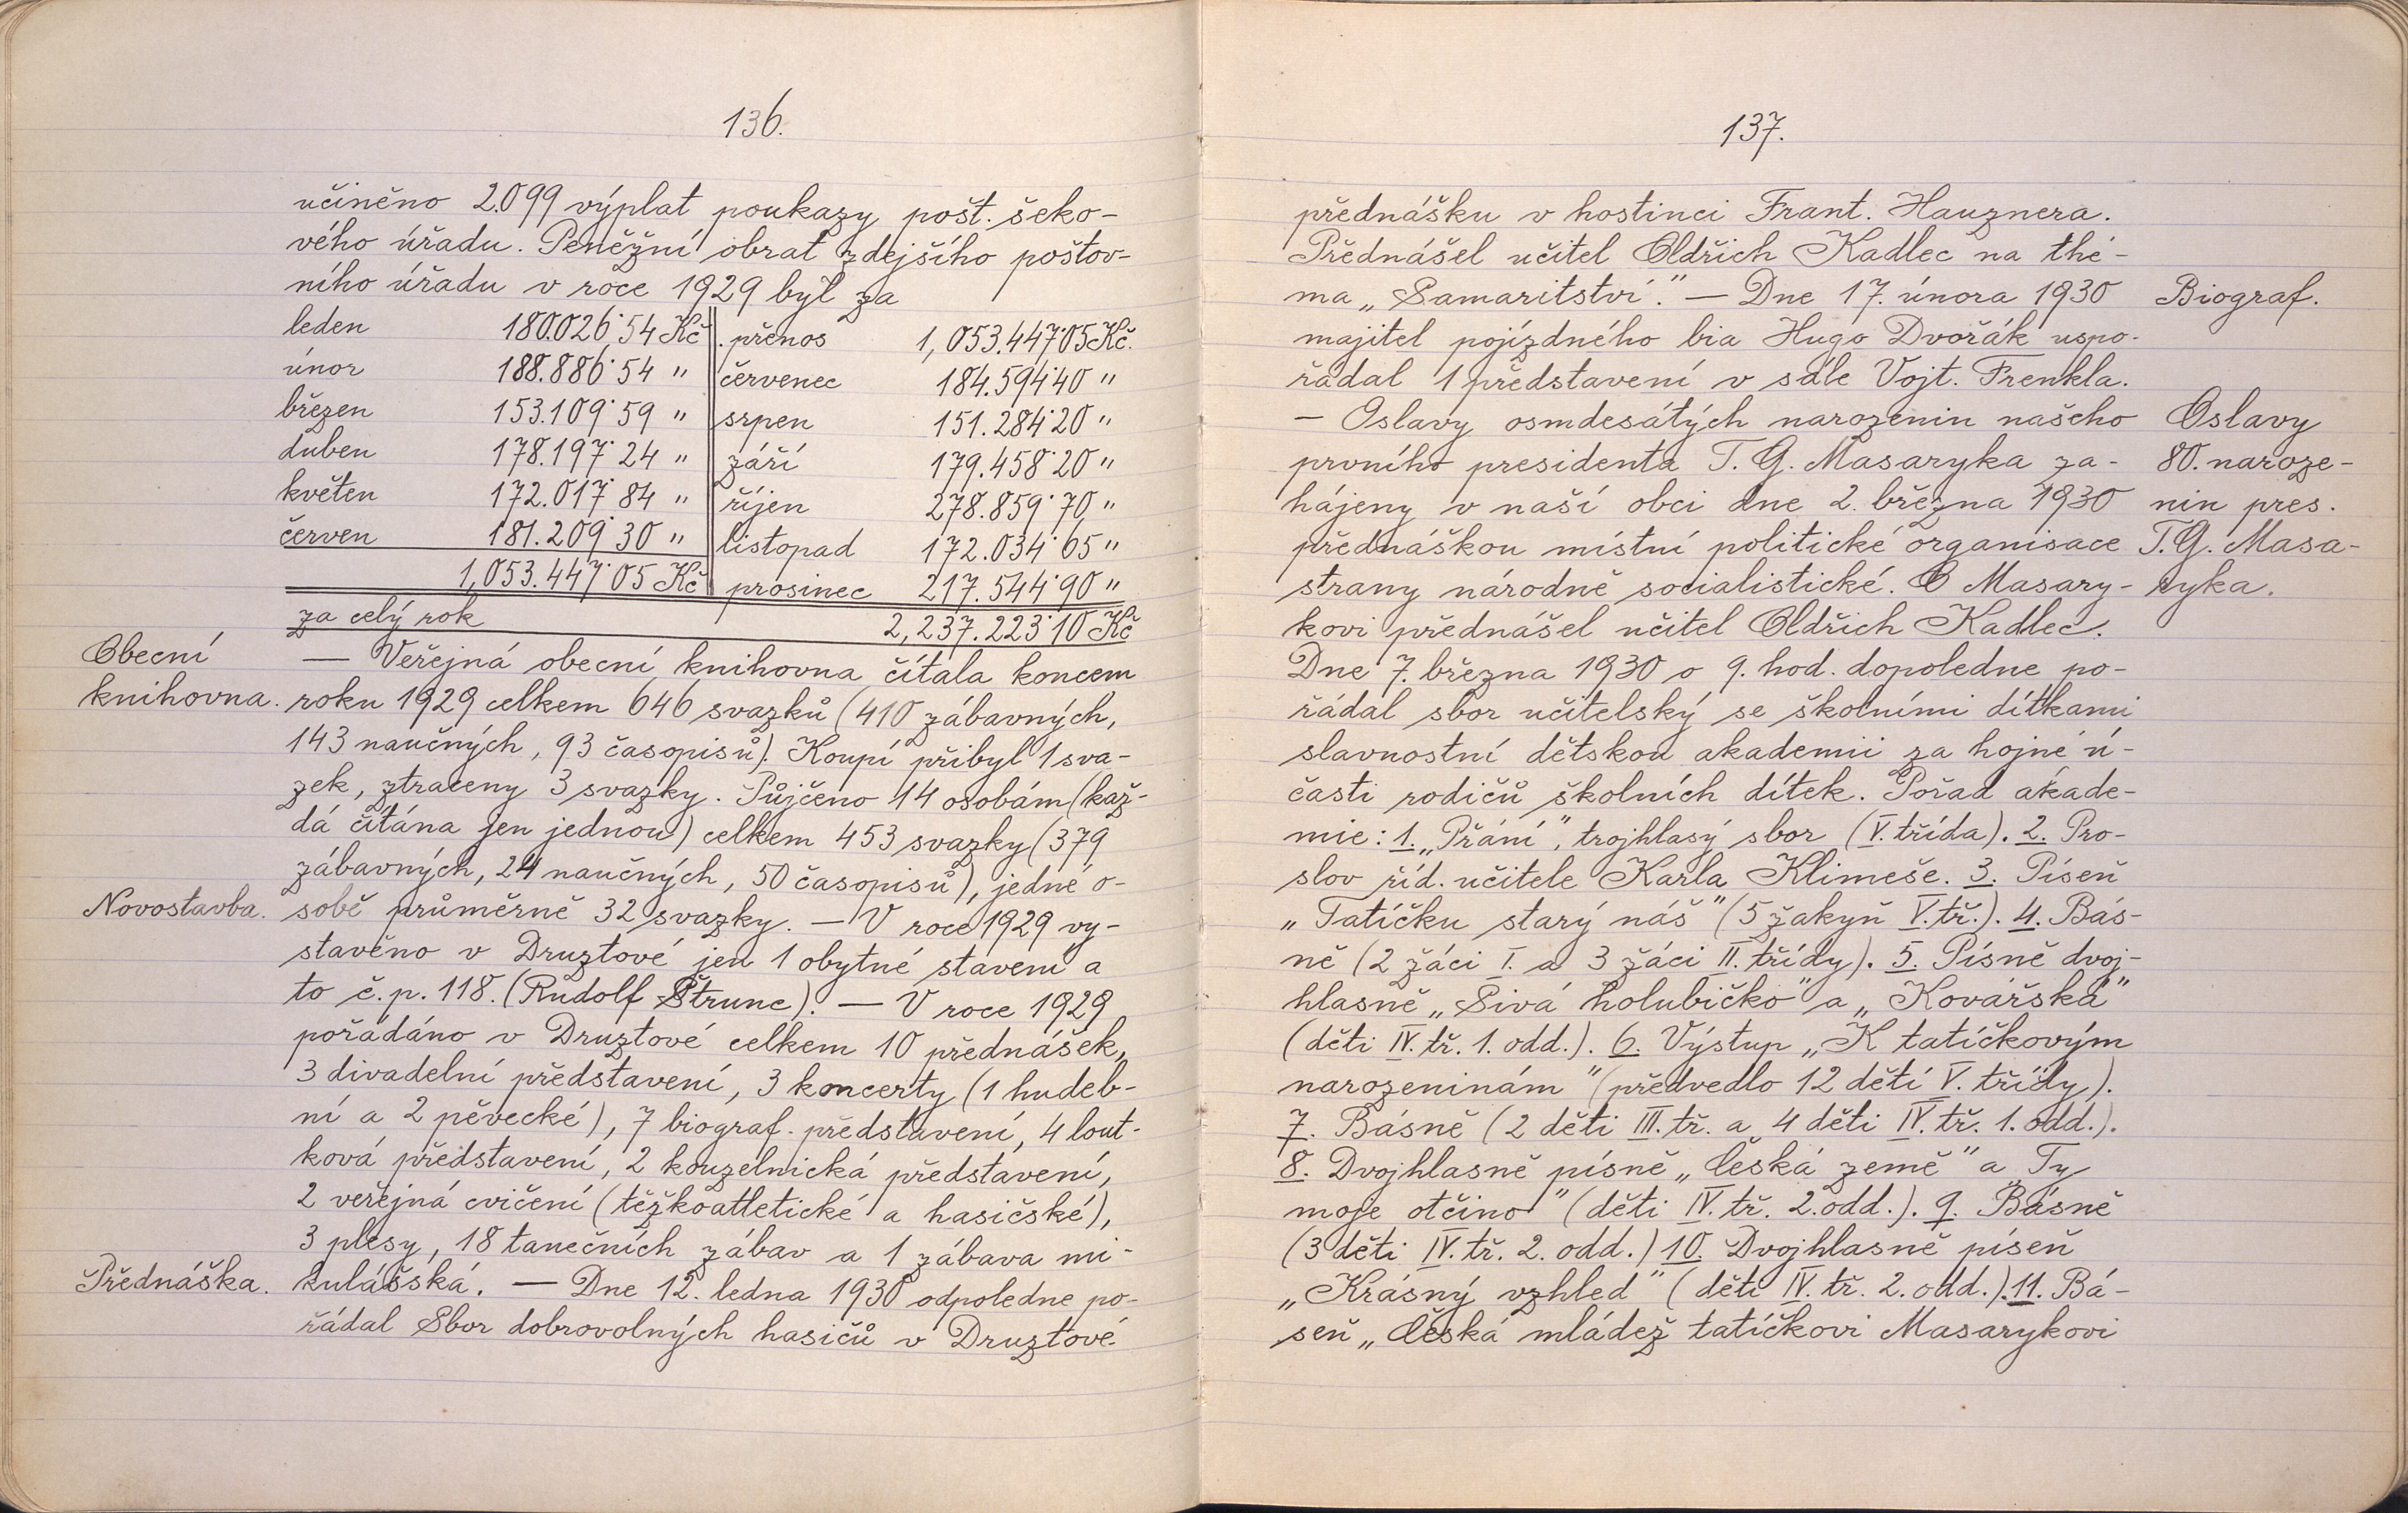 136.
učiněno 2.099 výplat poukazy pošt. šeko-
vého úřadu. Peněžní obrat zdejšího poštov-
ního úřadu v roce 1929 byl za
leden 180.026˙54 Kč přenos 1,053.447˙05 Kč.
únor 188.886˙54 " červenec 184.594˙40 "
březen 153.109˙59 " srpen 151.284˙20 "
duben 178.197˙24 " září 179.458˙20 "
květen 172.017˙84 " říjen 278.859˙70 "
červen 181.209˙30 " listopad 172.034˙65 "
1,053.447˙05 Kč prosinec 217.544˙90 "
za celý rok 2,237.223˙10 Kč
Obecní — Veřejná obecní knihovna čítala koncem
knihovna. roku 1929 celkem 646 svazků (410 zábavných,
143 naučných, 93 časopisů). Koupí přibyl 1 sva-
zek, ztraceny 3 svazky. Půjčeno 14 osobám (kaž-
dá čítána jen jednou) celkem 453 svazky (379
zábavných, 24 naučných, 50 časopisů), jedné o-
Novostavba. sobě průměrně 32 svazky. — V roce 1929 vy-
stavěno v Druztové jen 1 obytné stavení a
to č.p. 118. (Rudolf Štrunc). — V roce 1929
pořádáno v Druztové celkem 10 přednášek,
3 divadelní představení, 3 koncerty (1 hudeb-
ní a 2 pěvecké), 7 biograf. představení, 4 lout-
ková představení, 2 kouzelnická představení,
2 veřejná cvičení (těžkoatletické a hasičské),
3 plesy, 18 tanečních zábav a 1 zábava mi-
Přednáška. kulášská. — Dne 12. ledna 1930 odpoledne po-
řádal Sbor dobrovolných hasičů v Druztové
137.
přednášku v hostinci Frant. Hauznera.
Přednášel učitel Oldřich Kadlec na thé-
ma „Samaritství." — Dne 17. února 1930 Biograf.
majitel pojízdného bia Hugo Dvořák uspo-
řádal 1 představení v sále Vojt. Frenkla.
— Oslavy osmdesátých narozenin našeho Oslavy
prvního presidenta T. G. Masaryka za- 80. naroze-
hájeny v naší obci dne 2. března 1930 nin pres.
přednáškou místní politické organisace T.G. Masa-
strany národně socialistické. O Masary- ryka.
kovi přednášel učitel Oldřich Kadlec.
Dne 7. března 1930 o 9. hod. dopoledne po-
řádal sbor učitelský se školními dítkami
slavnostní dětskou akademii za hojné ú-
časti rodičů školních dítek. Pořad akade-
mie: 1. „Přání", trojhlasý sbor (V. třída). 2. Pro-
slov říd. učitele Karla Klimeše. 3. Píseň
„Tatíčku starý náš" (5 žakyň V. tř.). 4. Bás-
ně (2 žáci I. a 3 žáci II. třídy). 5. Písně dvoj-
hlasně „Sivá holubičko" a „Kovářská"
(děti IV. tř. 1. odd.). 6. Výstup „K tatíčkovým
narozeninám" (předvedlo 12 dětí V. třídy).
7. Básně (2 děti III. tř. a 4 děti IV. tř. 1. odd.).
8. Dvojhlasně písně „Česká země" a „Ty
moje otčino" (děti IV. tř. 2. odd.). 9. Básně
(3 děti IV. tř. 2. odd.) 10. Dvojhlasně píseň
„Krásný vzhled" (děti IV. tř. 2. odd.). 11. Bá-
seň „Česká mládež tatíčkovi Masarykovi